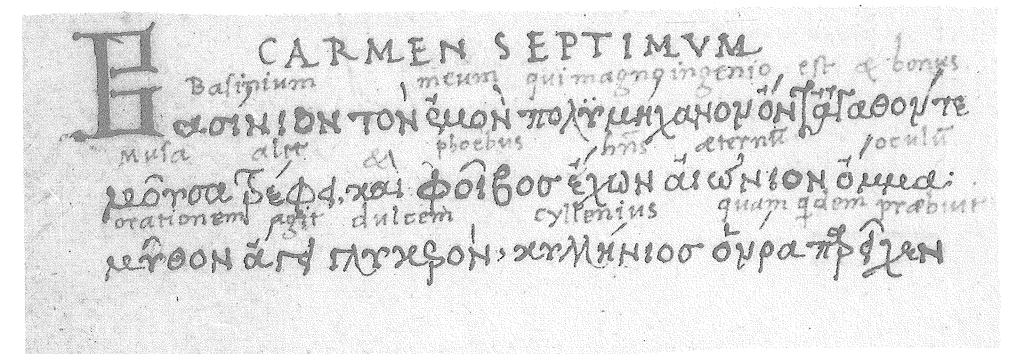 CARMEN SEPTIMVM
Basinium meum qui magnoq ingenio est & bonus
Βασίνιον τὸν ἐμὸν πολυμηχάνου ὄντ' ἀγαθοῦ τε
Musa alit & phoebus hns æternũ oculũ
μοῦσα τρέφει καὶ φοῖβοσ ἔχων αἰώνιον ὄμμα:
orationem agit dulcem cyllenius quam qdem præbuit
μῦθον ἄγει γλυκερὸν, κυλλήνιοσ ὅν ρα